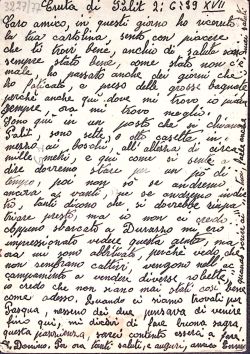 3227/77 Cruta di Palit 2: 6°39 XVII
Caro amico, in questi giorno ho ricevuto
la tua cartolina, sento con piacere
che ti trovi bene, anchio di salute sono
sempre stato bene, come stato non c'è
male, ho passato anche dei giorni che
ho faticato, e preso delle grosse bagnate
perchè anche qui dove mi trovo io piove
sempre ora mi trovo meglio.
Sono in un posto che si chiama
Palit, sono sette, o otto casette in
mezzo ai boschi, all'altezza di circa
mille metri, e qui come si sente a
dire dovremo stare per un po di
tempo, poi non io se andremo
ancora a vanti, o se andremo indie
tro, tanti dicono che si dovrebbe rimpa
triare presto, ma io non credo.
Appena sbarcato a Durazzo mi ero
impressionato vedere questa gente, ma
ora mi sono abituato, perchè vedo che
non sengrano cattivi, vengono nell'ac
campamento a vendere diverse robette,
io credo che non siano mai stati così bene
come adesso. Quando ci siamo trovati per
Pasqua, nessuno dei due pensava di venire
fino qui, mi dicevi di fare buona sagra,
questa sarei contento essere a fare
S. Domino. Per ora tanti saluti, e auguri,